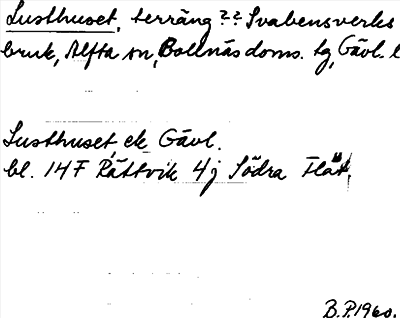 Lusthuset, terräng?? Svabensverks
bruk, Alfta sn, Bollnäs doms. tg, Gävl. l
Lusthuset ek Gävl.
bl. 14F Rättvik 4j Södra Flät
B.P. 1960.